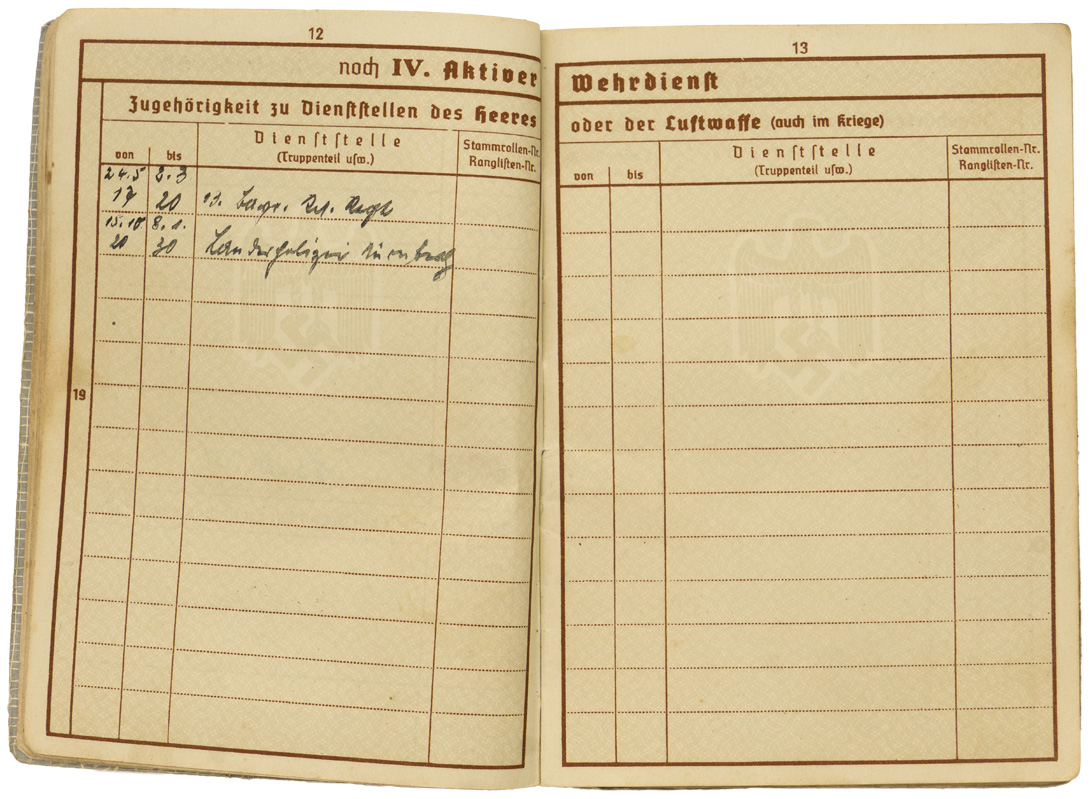 12
noch IV. Aktiver
Zugehörigkeit zu Dienststellen des Heeres
von
bis
Dienststelle
(Truppenteil usw.)
Stammrollen-Nr.
Ranglisten-Nr.
24.5 8.3
17 20 Bayr. Regt
15.10 8.1.
20 30 Landespolizei Nürnberg
19
13
Wehrdienst
oder der Luftwaffe (auch im Kriege)
von
bis
Dienststelle
(Truppenteil usw.)
Stammrollen-Nr.
Ranglisten-Nr.